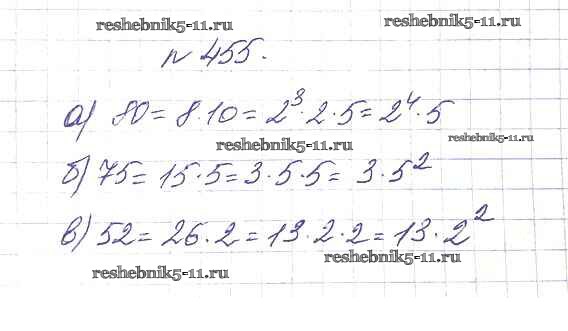 reshebnik5-11.ru reshebnik5-11.ru
№ 455.
а) 80 = 8·10 = 2³·2·5 = 2⁴·5
reshebnik5-11.ru reshebnik5-11.ru
б) 75 = 15·5 = 3·5·5 = 3·5²
в) 52 = 26·2 = 13·2·2 = 13·2²
reshebnik5-11.ru reshebnik5-11.ru